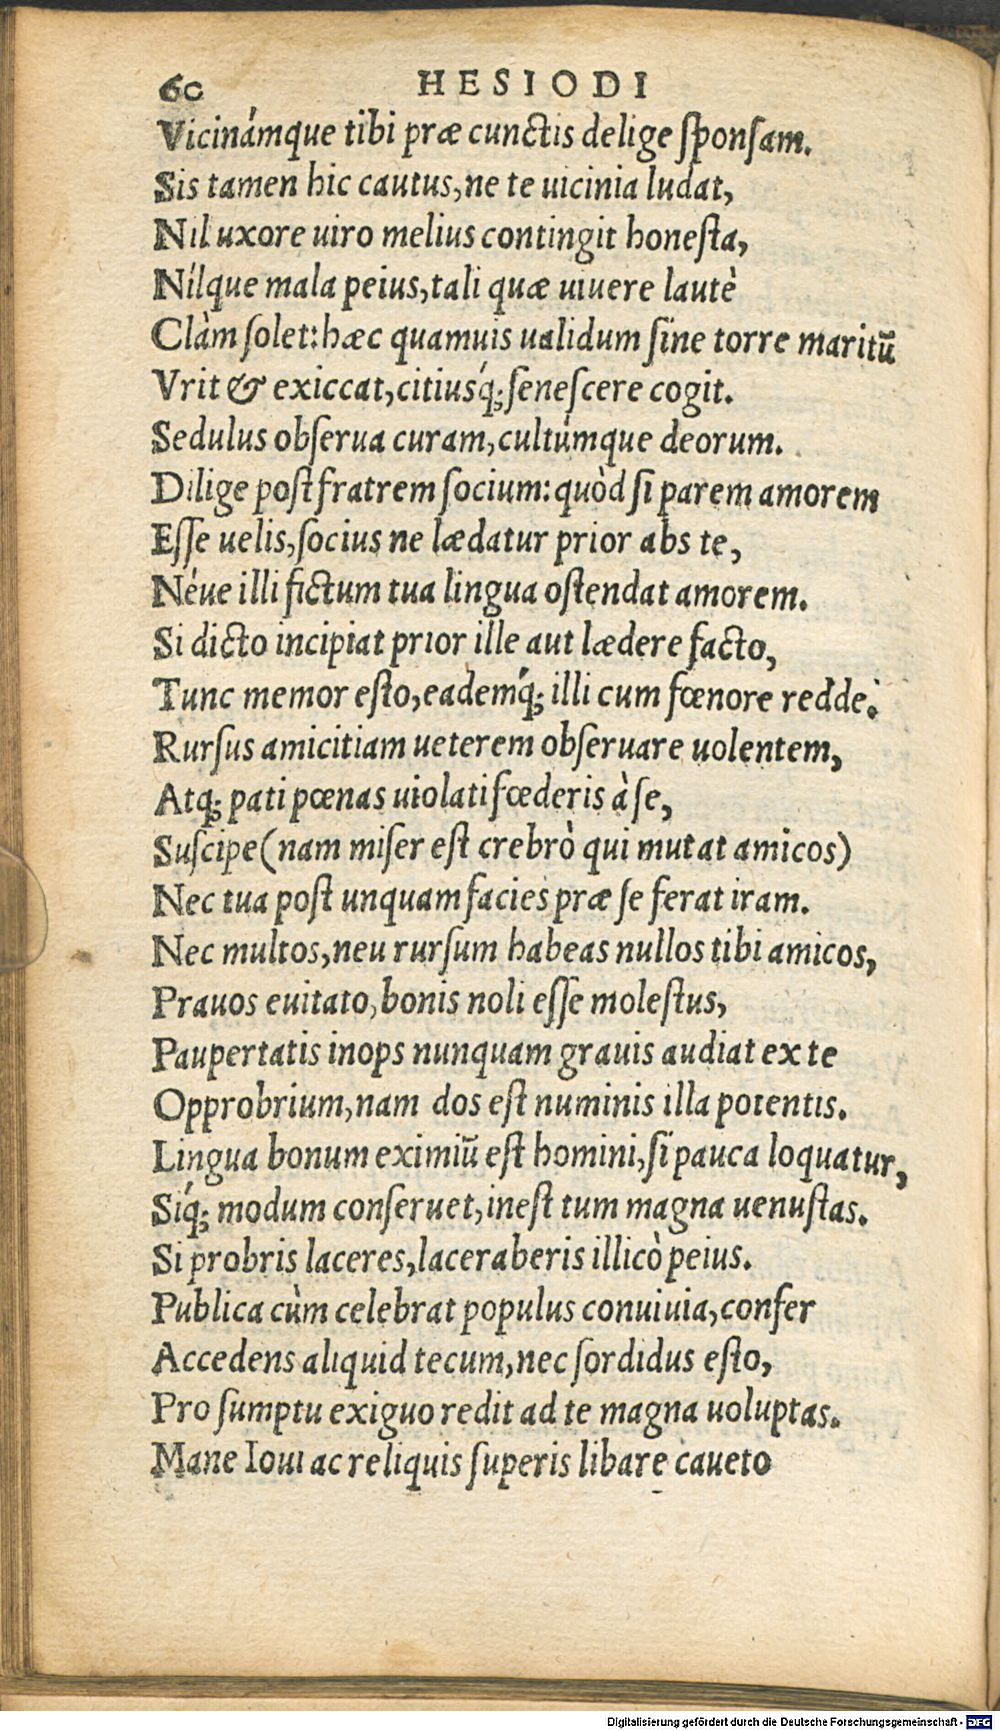 60 HESIODI
Vicinámque tibi præ cunctis delige sponsam.
Sis tamen hic cautus, ne te uicinia ludat,
Nil uxore uiro melius contingit honesta,
Nílque mala peius, tali quæ uiuere lautè
Clàm solet: hæc quamuis ualidum sine torre maritū
Vrit & exiccat, citiusq́; senescere cogit.
Sedulus obserua curam, cultúmque deorum.
Dilige post fratrem socium: quòd si parem amorem
Esse uelis, socius ne lædatur prior abs te,
Néue illi fictum tua lingua ostendat amorem.
Si dicto incipiat prior ille aut lædere facto,
Tunc memor esto, eademq́; illi cum fœnore redde.
Rursus amicitiam ueterem obseruare uolentem,
Atq; pati pœnas uiolati fœderis à se,
Suscipe (nam miser est crebrò qui mutat amicos)
Nec tua post unquam facies præ se ferat iram.
Nec multos, neu rursum habeas nullos tibi amicos,
Prauos euitato, bonis noli esse molestus,
Paupertatis inops nunquam grauis audiat ex te
Opprobrium, nam dos est numinis illa potentis.
Lingua bonum eximiū est homini, si pauca loquatur,
Siq́; modum conseruet, inest tum magna uenustas.
Si probris laceres, laceraberis illicò peius.
Publica cùm celebrat populus conuiuia, confer
Accedens aliquid tecum, nec sordidus esto,
Pro sumptu exiguo redit ad te magna uoluptas.
Mane Ioui ac reliquis superis libare caueto
Digitalisierung gefördert durch die Deutsche Forschungsgemeinschaft - DFG